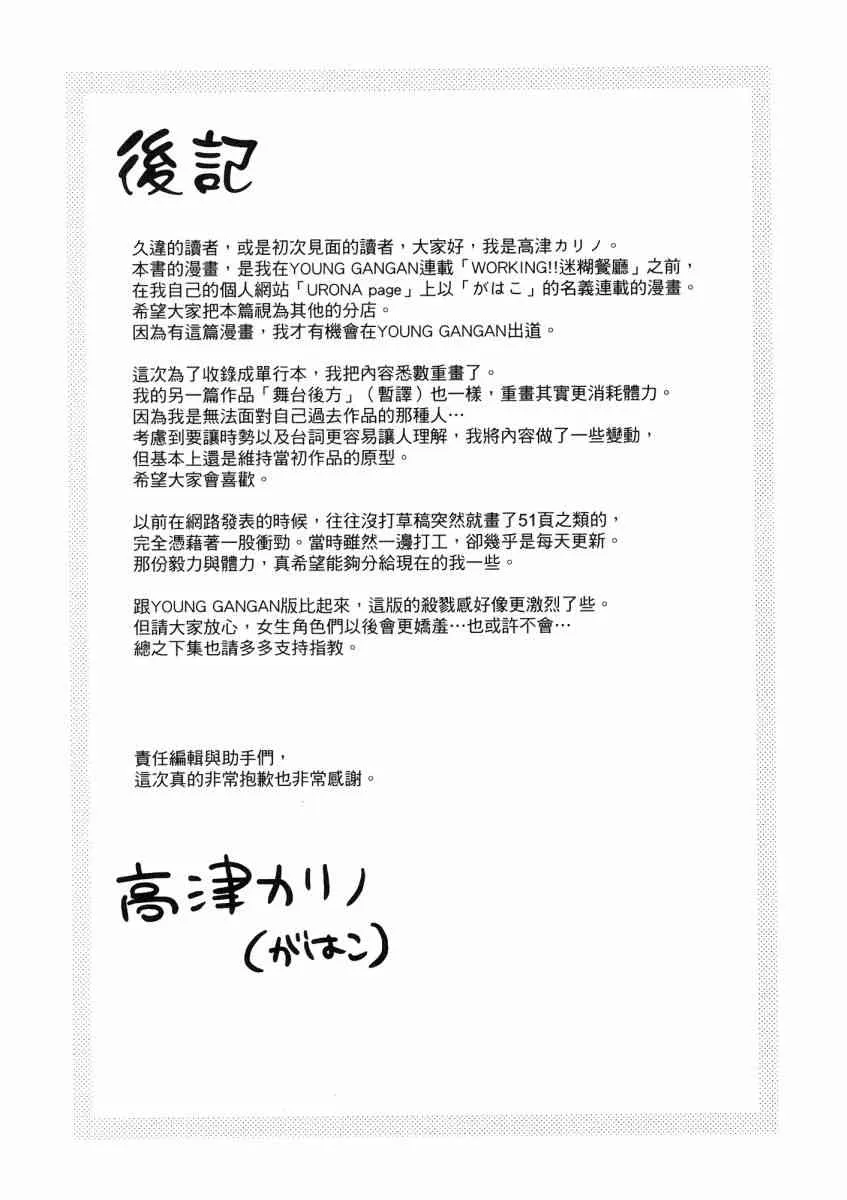 後記
久違的讀者，或是初次見面的讀者，大家好，我是高津カリノ。
本書的漫畫，是我在YOUNG GANGAN連載「WORKING!!迷糊餐廳」之前，
在我自己的個人網站「URONA page」上以「がはこ」的名義連載的漫畫。
希望大家把本篇視為其他的分店。
因為有這篇漫畫，我才有機會在YOUNG GANGAN出道。
這次為了收錄成單行本，我把內容悉數重畫了。
我的另一篇作品「舞台後方」（暫譯）也一樣，重畫其實更消耗體力。
因為我是無法面對自己過去作品的那種人…
考慮到要讓時勢以及台詞更容易讓人理解，我將內容做了一些變動，
但基本上還是維持當初作品的原型。
希望大家會喜歡。
以前在網路發表的時候，往往沒打草稿突然就畫了51頁之類的，
完全憑藉著一股衝勁。當時雖然一邊打工，卻幾乎是每天更新。
那份毅力與體力，真希望能夠分給現在的我一些。
跟YOUNG GANGAN版比起來，這版的殺戮感好像更激烈了些。
但請大家放心，女生角色們以後會更嬌羞…也或許不會…
總之下集也請多多支持指教。
責任編輯與助手們，
這次真的非常抱歉也非常感謝。
高津カリノ
(がはこ)